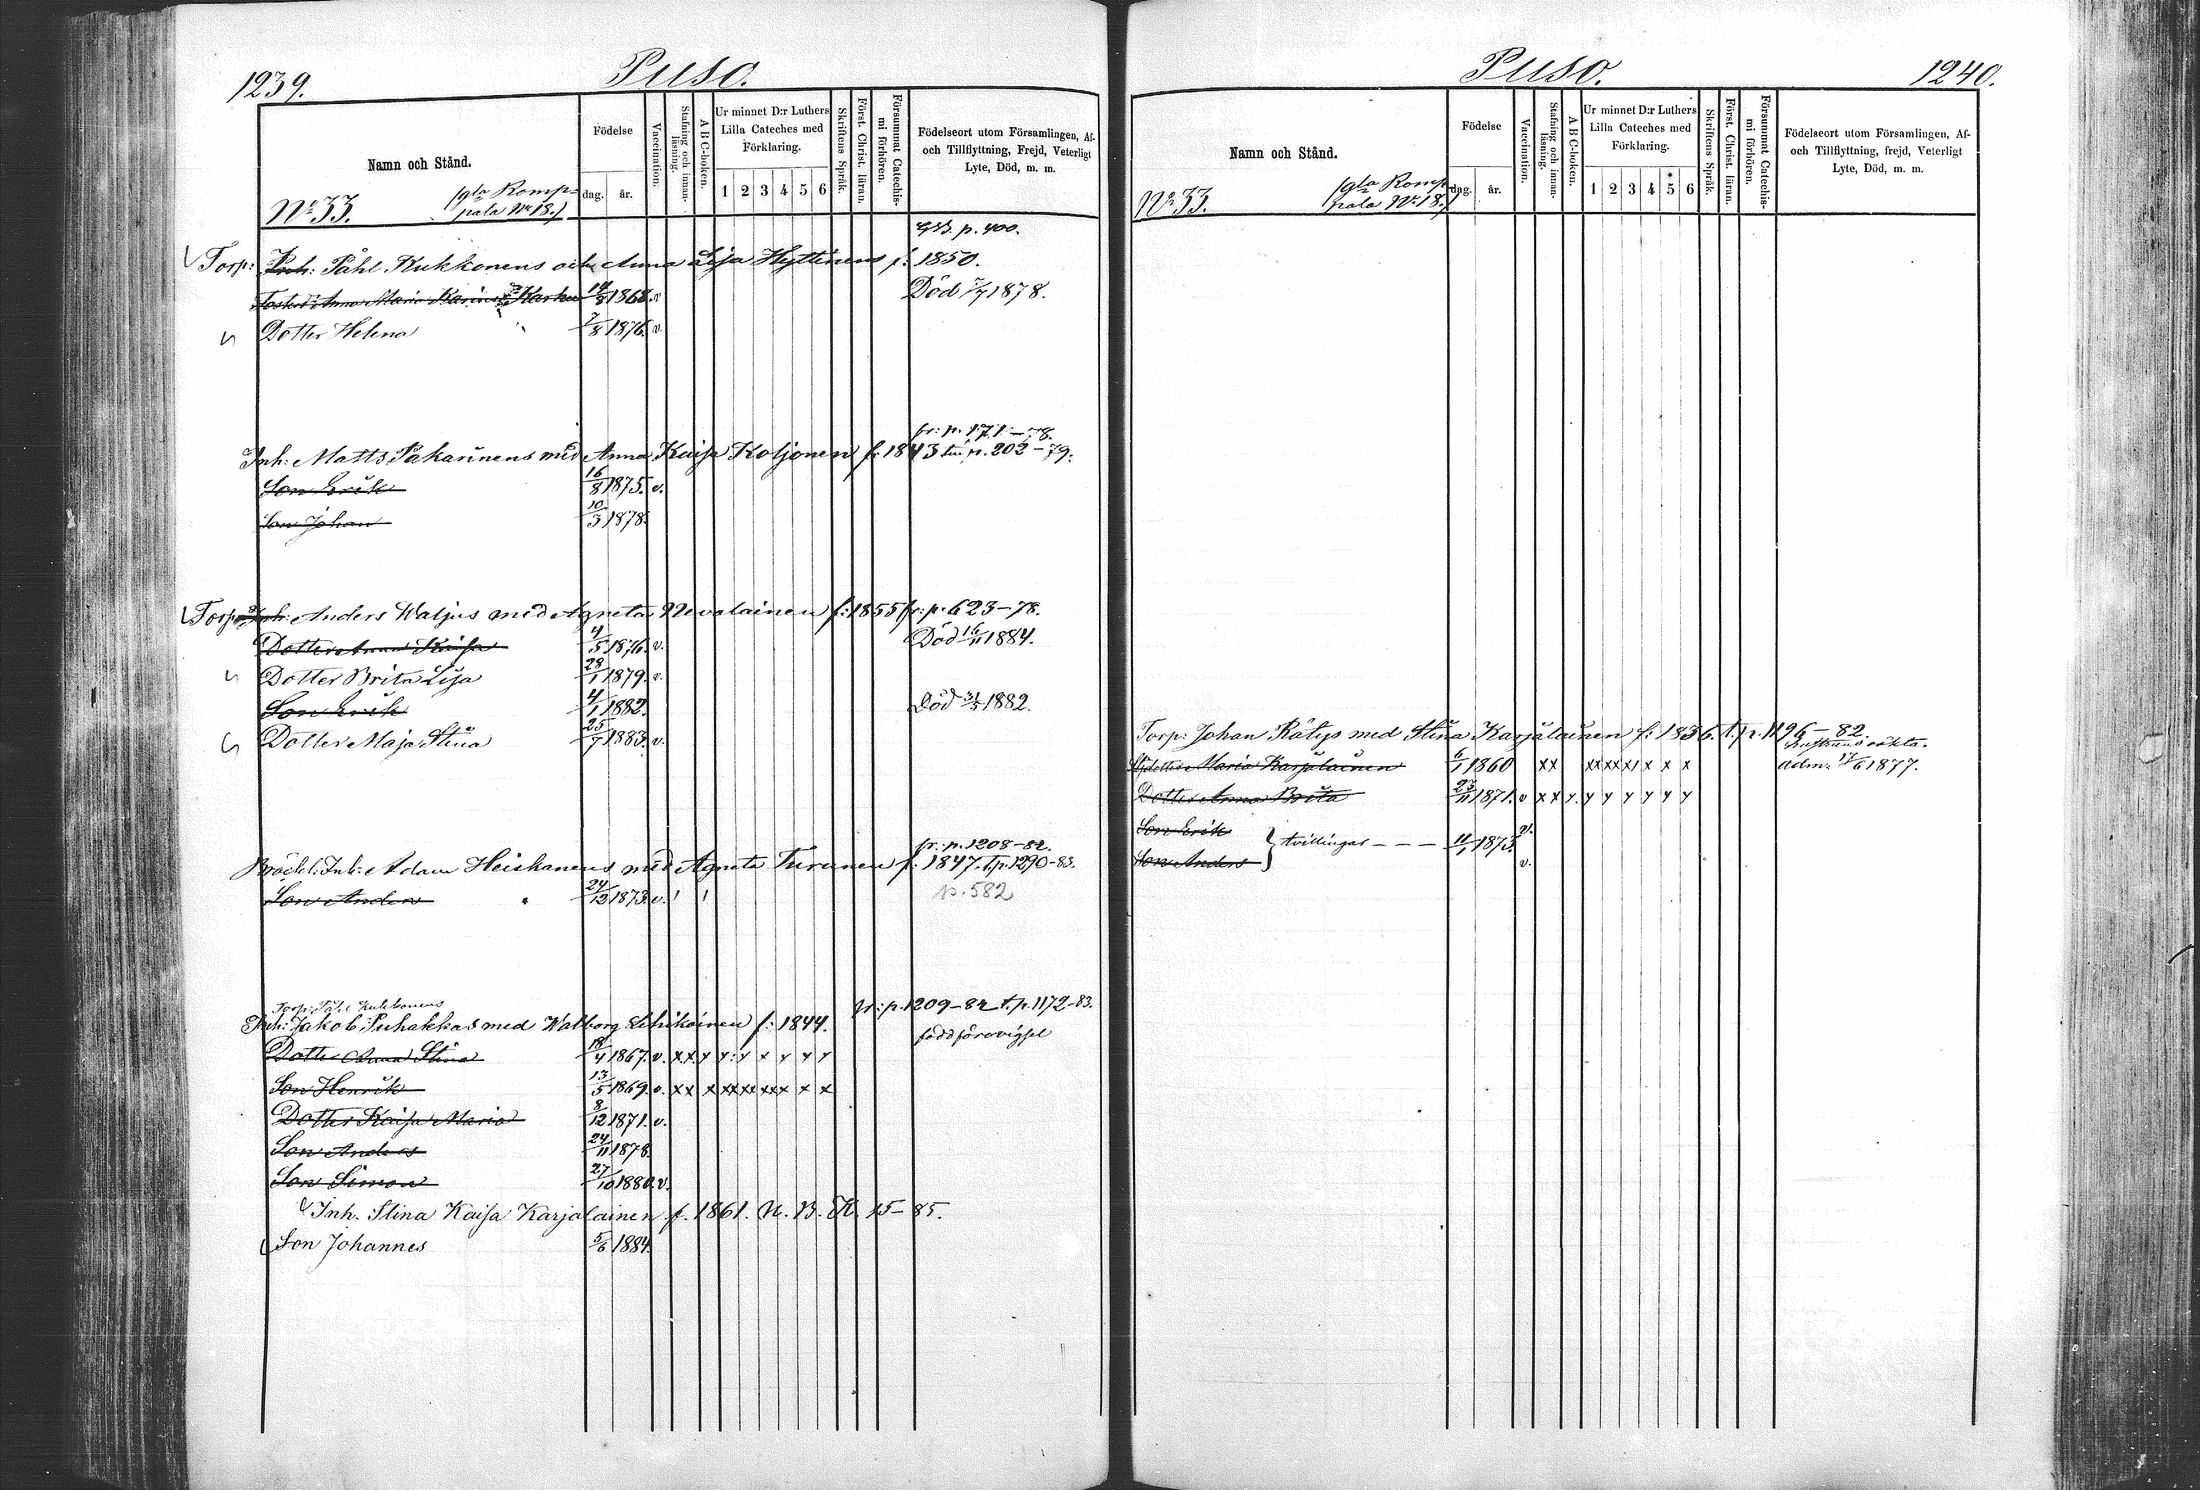 1239.
Puso.
Namn och Stånd.
Födelse
dag.
år.
Vaccination.
Stafning och innanläsning.
A B C-boken.
Ur minnet D:r Luthers Lilla Cateches med Förklaring.
1 2 3 4 5 6
Skriftens Språk.
Först. Christ. läran.
Försummat Catechismi förhören.
Födelseort utom Församlingen, Af- och Tillflyttning, Frejd, Veterligt Lyte, Död, m. m.
No 33. (gla Romppala No 18.)
p. 400.
Torp: Inh: Påhl Kukkonens och Anna Lisa Hyttinens f: 1850.
Anna Maria 14/8 1868. v Död 7/7 1878.
Dotter Helena 7/8 1876. v.
fr: p. 171-78.
Inh: Matts Pakarinens med Anna Kaisa Koljonen f: 1843 till p. 202-79.
Son Erik 16/8 1875. v.
Son Johan 10/3 1878.
Torp: Inh: Anders Waljus med Agneta Nevalainen f: 1855 fr: p. 623-78.
Dotter Anna Kaisa 4/5 1876. v. Död 16/11 1884.
Dotter Brita Lisa 28/1 1879. v.
Son Erik 4/1 1882. Död 31/5 1882.
Dotter Maja Stina 25/7 1883. v.
fr: p. 1208-82.
Inh: Adam Heiskanens med Agneta Turunen f. 1847. t.p. 1290-83.
Son Anders 24/12 1873. v. ' ' p. 582
Torp: Påhl Kukkonens
Inh: Jakob Puhakkas med Walborg Lehikoinen f: 1844. fr: p. 1209-82 t.p. 1172-83.
Dotter Anna Stina 18/4 1867. v. född före vigsel
Son Henrik 13/5 1869. v. xx x xx xx xx x x
Dotter Kaisa Maria 8/12 1871. v.
Son Anders 24/11 1878.
Son Simon 27/10 1880. v.
Inh. Stina Kaisa Karjalainen f. 1861. N. B. K. 15-85.
Son Johannes 5/6 1884.
Puso.
1240.
Namn och Stånd.
Födelse
dag.
år.
Vaccination.
Stafning och innanläsning.
A B C-boken.
Ur minnet D:r Luthers Lilla Cateches med Förklaring.
1 2 3 4 5 6
Skriftens Språk.
Först. Christ. läran.
Försummat Catechismi förhören.
Födelseort utom Församlingen, Af- och Tillflyttning, frejd, Veterligt Lyte, Död, m. m.
No 33. (gla Romppala No 18.)
Torp: Johan Rätys med Stina Karjalainen f: 1836. t. p. 1196-82.
Maria Karjalainen 6/1 1860 xx adm. 17/6 1877.
Dotter Anna Brita 23/11 1871. v
Son Erik v.
tvillingar - - - 11/1 1873.
Son Anders v.